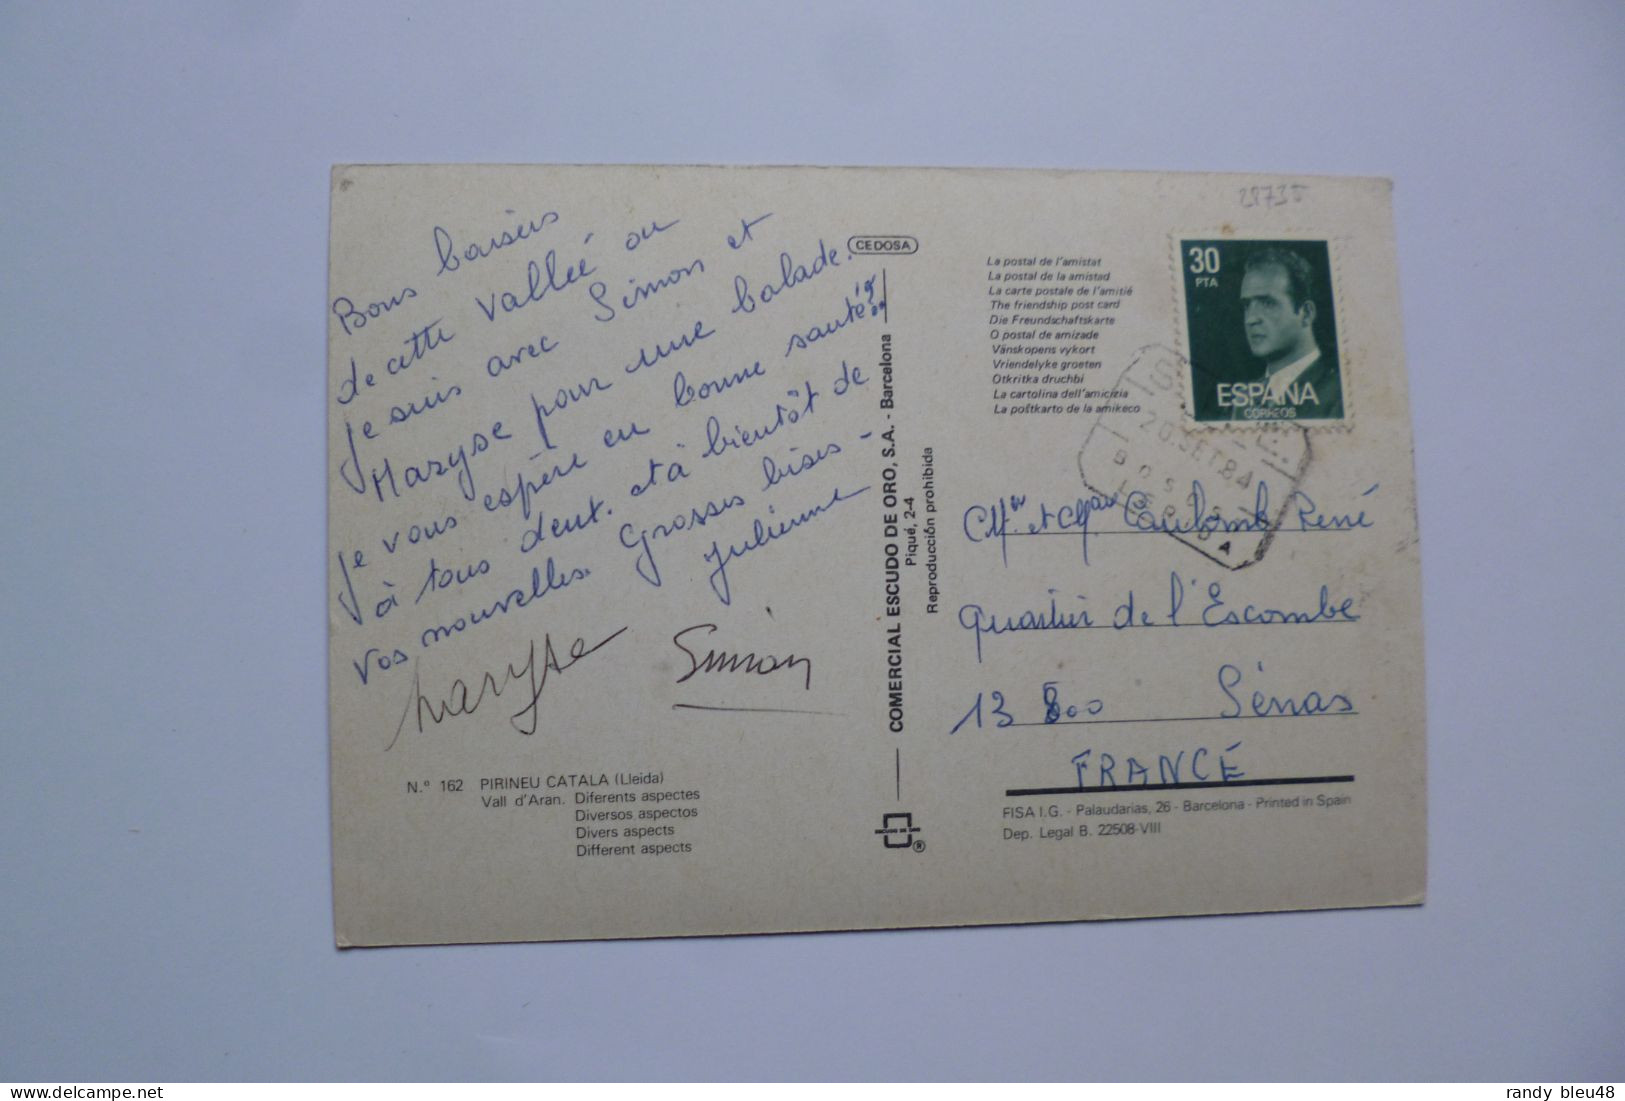 Bons baisers
de cette valleé ou
je suis avec Simon et
Maryse pour une balade.
je vous espère en bonne santé!
à tous deux. et à bientôt de
vos nouvelles. Grosses bises -
Julienne
Maryse Simon
N.º 162 PIRINEU CATALA (Lleida)
Vall d'Aran. Diferents aspectes
Diversos aspectos
Divers aspects
Different aspects
CEDOSA
COMERCIAL ESCUDO DE ORO, S.A. - Barcelona
Piqué, 2-4
Reproducción prohibida
ESCUDO DE ORO
®
28735
La postal de l'amistat
La postal de la amistad
La carte postale de l'amitié
The friendship post card
Die Freundschaftskarte
O postal de amizade
Vänskopens vykort
Vriendelyke groeten
Otkritka druchbi
La cartolina dell'amicizia
La poŝtkarto de la amikeco
30
PTA
ESPAÑA
CORREOS
20.SET.84
BOSOST
LERIDA
Mr. et Mme Coulomb René
Quartier de l'Escombe
13 800 Sénas
FRANCE
FISA I.G. - Palaudarias, 26 - Barcelona - Printed in Spain
Dep. Legal B. 22508-VIII
randy bleu48